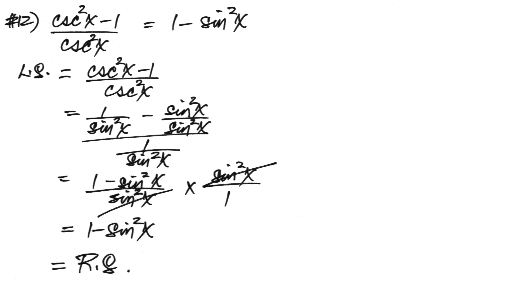 #12) csc²x-1 / csc²x = 1 - sin²x
L.S. = csc²x-1 / csc²x
= 1/sin²x - sin²x/sin²x / 1/sin²x
= 1-sin²x / sin²x × sin²x / 1
= 1-sin²x
= R.S.